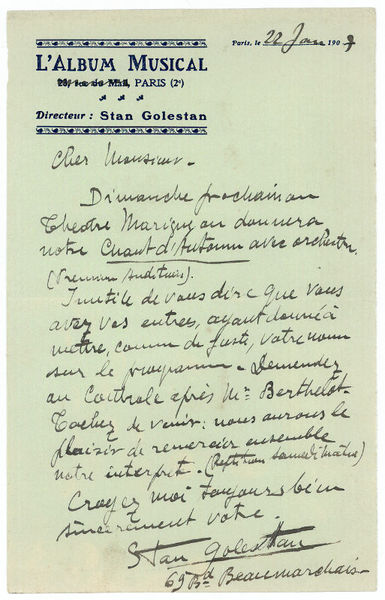 L'ALBUM MUSICAL
Paris, le 22 Janv 1907
23, rue du Mail, PARIS (2e)
Directeur : Stan Golestan
Cher Monsieur -
Dimanche prochain au
Théâtre Marigny on donnera
notre Chant d'Automn avec orchestre
(Première Audition).
Inutile de vous dire que vous
avez vos entrées, ayant donné à
mettre, comme de juste, votre nom
sur le programme - Demandez
au Contrôle après Mr Berthelot -
Tachez de venir; nous aurons le
plaisir de remercier ensemble
notre interprète. (Répétition samedi matin)
Croyez moi toujours bien
sincèrement votre.
Stan Golestan
69 Bd Beaumarchais